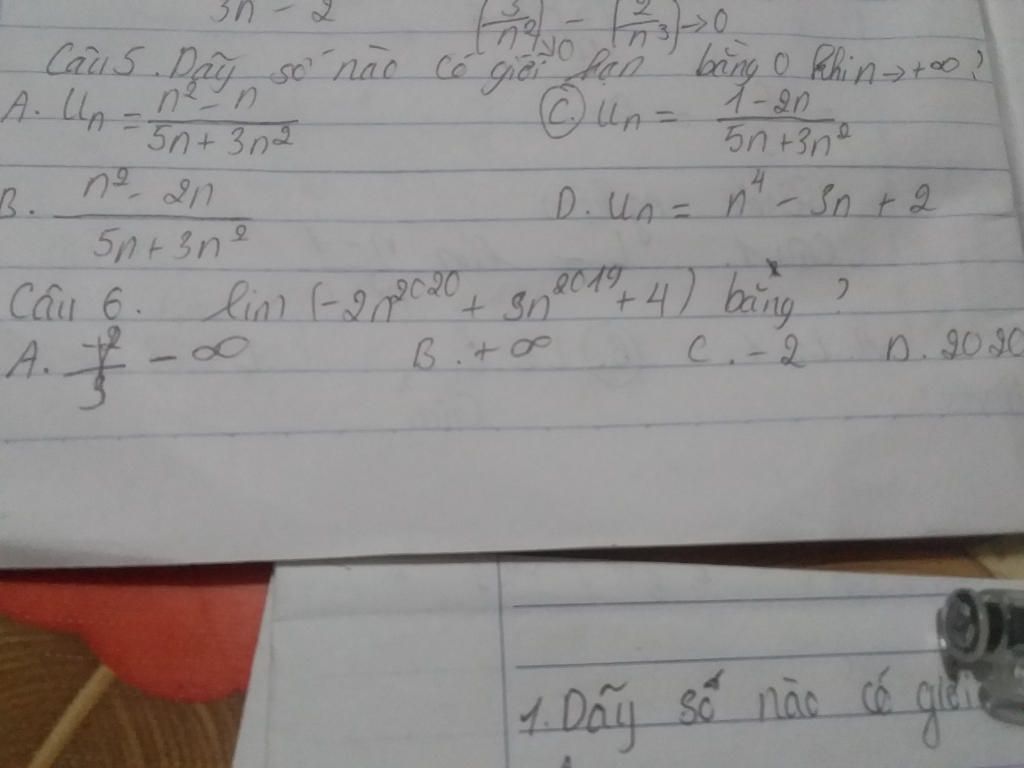 3n - 2 (3/n²)→0 - (2/n³)→0
Câu 5. Dãy số nào có giới hạn bằng 0 khi n → +∞?
A. Uₙ = (n² - n)/(5n + 3n²) C. Uₙ = (1 - 2n)/(5n + 3n²)
B. (n² - 2n)/(5n + 3n²) D. Uₙ = n⁴ - 3n + 2
Câu 6. lim (-2n²⁰²⁰ + 3n²⁰¹⁹ + 4) bằng ?
A. - ∞ B. + ∞ C. - 2 D. 2020
1. Dãy số nào có giới